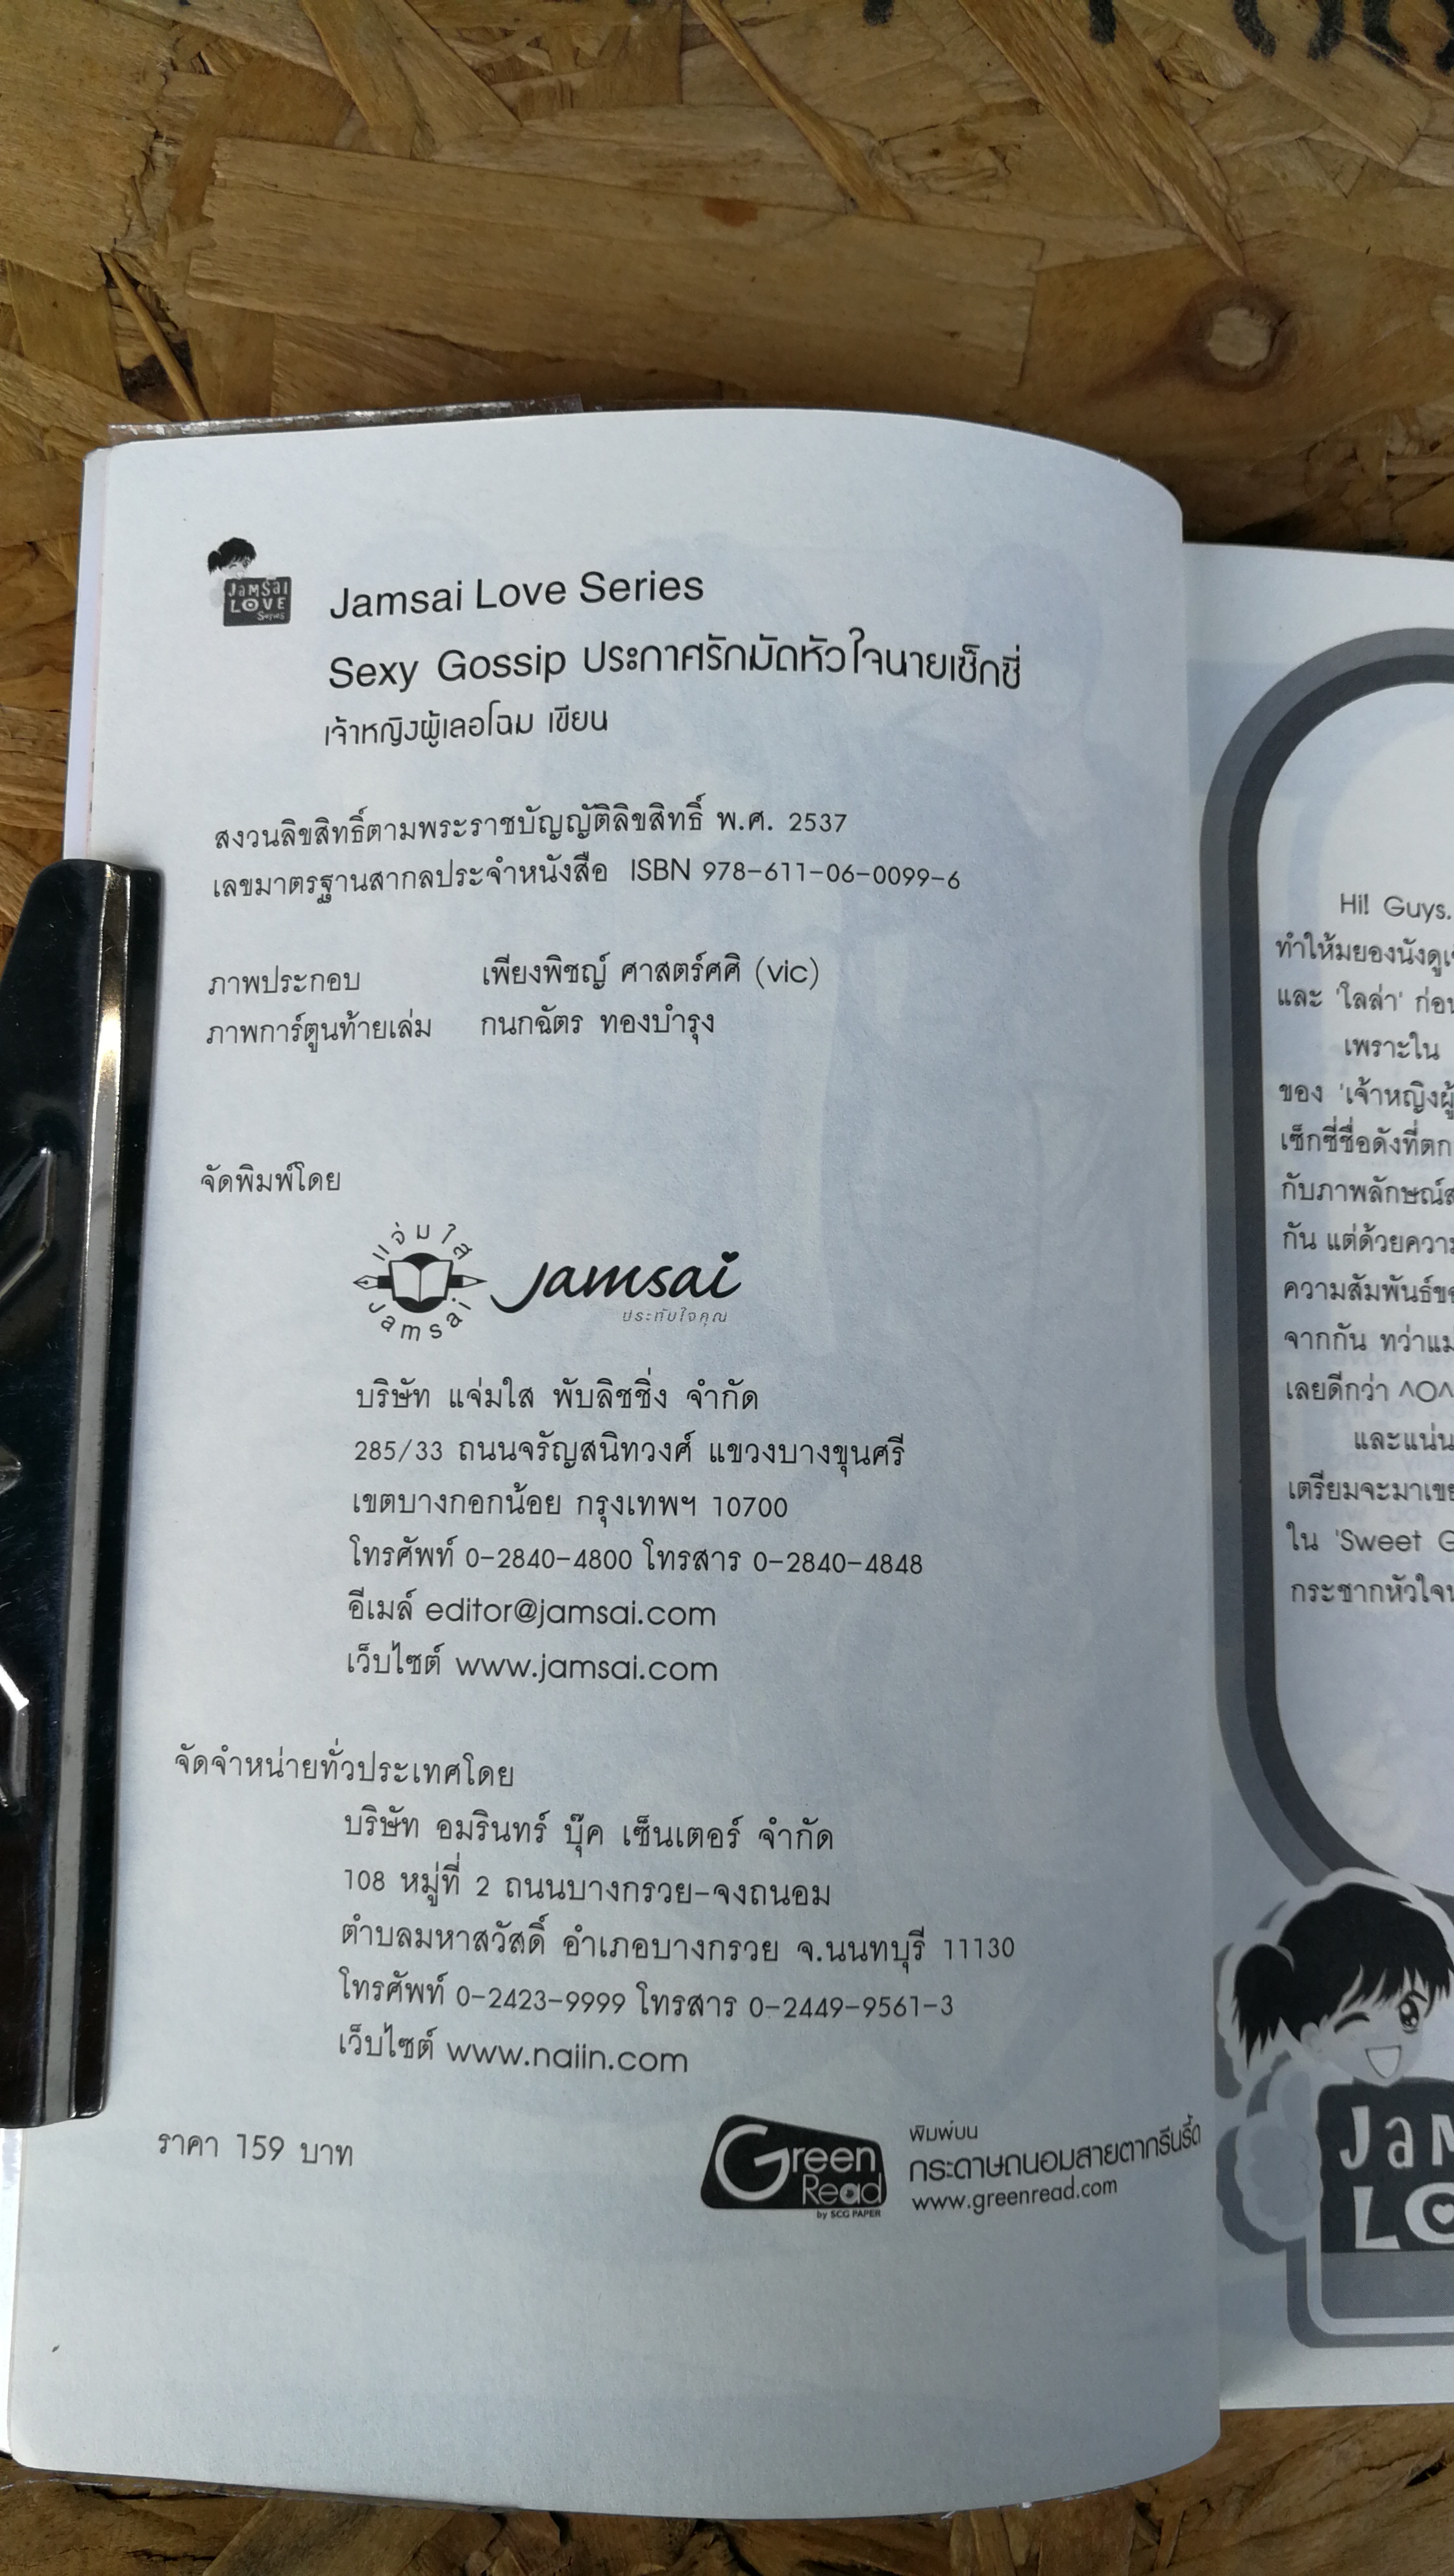 JaMSai
LOVE
Series
Jamsai Love Series
Sexy Gossip ประกาศรักมัดหัวใจนายเซ็กซี่
เจ้าหญิงผู้เลอโฉม เขียน
สงวนลิขสิทธิ์ตามพระราชบัญญัติลิขสิทธิ์ พ.ศ. 2537
เลขมาตรฐานสากลประจำหนังสือ ISBN 978-611-06-0099-6
ภาพประกอบ เพียงพิชญ์ ศาสตร์ศศิ (vic)
ภาพการ์ตูนท้ายเล่ม กนกฉัตร ทองบำรุง
จัดพิมพ์โดย
แจ่มใส
Jamsai
Jamsai
ประทับใจคุณ
บริษัท แจ่มใส พับลิชชิ่ง จำกัด
285/33 ถนนจรัญสนิทวงศ์ แขวงบางขุนศรี
เขตบางกอกน้อย กรุงเทพฯ 10700
โทรศัพท์ 0-2840-4800 โทรสาร 0-2840-4848
อีเมล์ editor@jamsai.com
เว็บไซต์ www.jamsai.com
จัดจำหน่ายทั่วประเทศโดย
บริษัท อมรินทร์ บุ๊ค เซ็นเตอร์ จำกัด
108 หมู่ที่ 2 ถนนบางกรวย-จงถนอม
ตำบลมหาสวัสดิ์ อำเภอบางกรวย จ.นนทบุรี 11130
โทรศัพท์ 0-2423-9999 โทรสาร 0-2449-9561-3
เว็บไซต์ www.naiin.com
ราคา 159 บาท
Green
Read
by SCG PAPER
พิมพ์บน
กระดาษถนอมสายตากรีนรี้ด
www.greenread.com
Hi! Guys.
ทำให้มยองนังดู
และ 'ไลล่า' ก่อน
เพราะใน
ของ 'เจ้าหญิงผู้
เซ็กซี่ชื่อดังที่ตก
กับภาพลักษณ์
กัน แต่ด้วยความ
ความสัมพันธ์ข
จากกัน ทว่าแม
เลยดีกว่า ^O^
และแน่น
เตรียมจะมาเข
ใน 'Sweet G
กระชากหัวใจ
JaM
LO